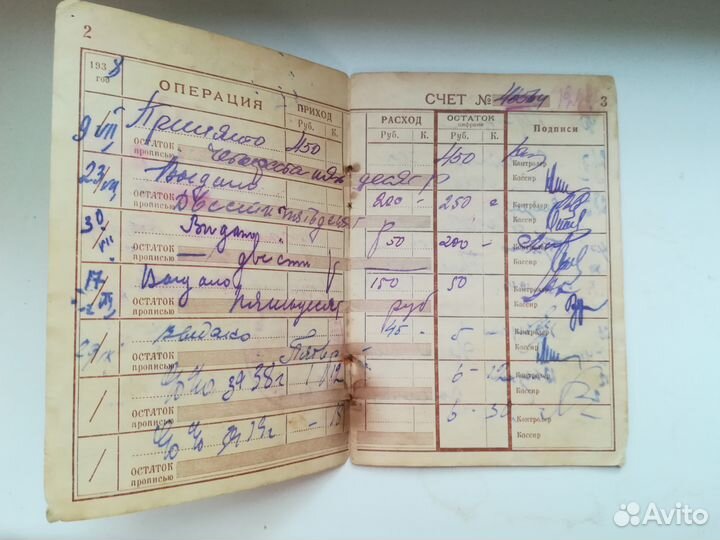 2
1938
год
ОПЕРАЦИЯ
ПРИХОД
Руб. К.
9/VII Принято 450
ОСТАТОК прописью Четыреста пять
23/VII Выдано
ОСТАТОК прописью Двести пятьдесят
30/VII Выдано
ОСТАТОК прописью — двести
17/ Выдано
ОСТАТОК прописью пятьдесят
ОСТАТОК прописью
% % за 38 г 1 12
ОСТАТОК прописью
% %
ОСТАТОК прописью
СЧЕТ №
3
РАСХОД
Руб. К.
ОСТАТОК
цифрами
Руб. К.
Подписи
450
Контролер
десят р
Кассир
200 - 250
Контролер
Кассир
р 50 200 -
Контролер
Кассир
150 50
Контролер
руб
Кассир
45 - 5 -
Контролер
Кассир
6 - 12
Контролер
Кассир
6 - 30
Контролер
Кассир
Avito